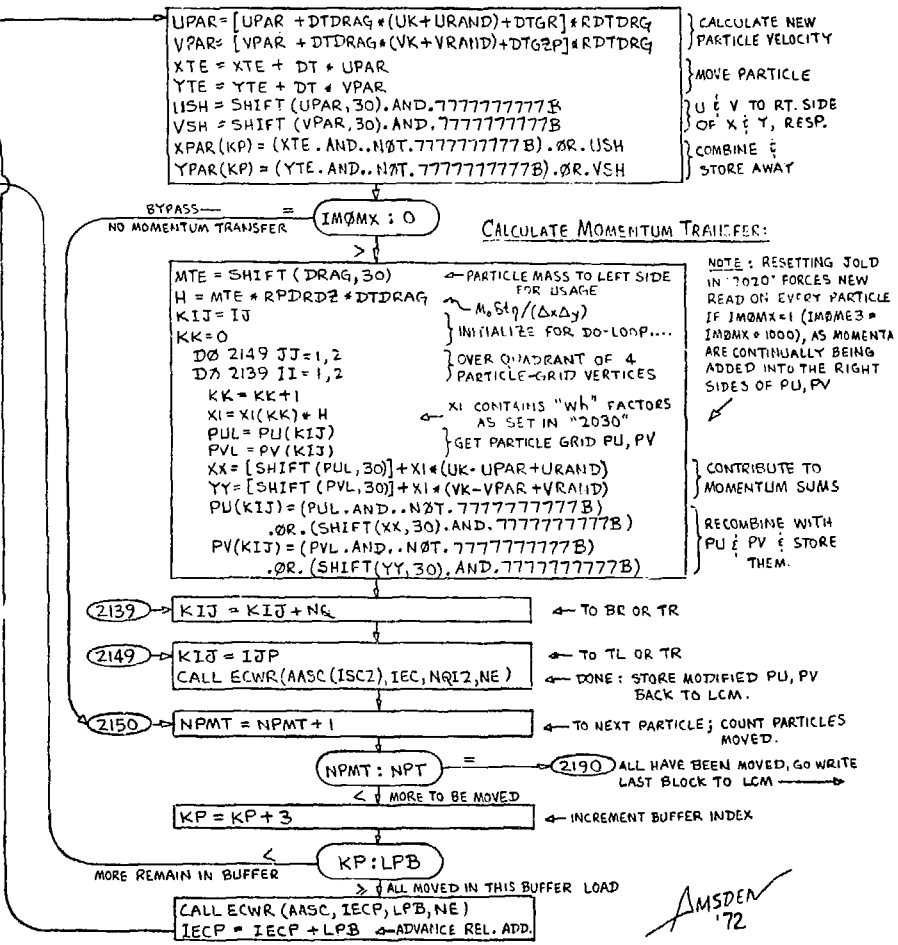 UPAR=[UPAR +DTDRAG*(UK+URAND)+DTGR]*RDTDRG
VPAR=[VPAR +DTDRAG*(VK+VRAND)+DTGZP]*RDTDRG
} CALCULATE NEW
PARTICLE VELOCITY
XTE = XTE + DT * UPAR
YTE = YTE + DT * VPAR
} MOVE PARTICLE
USH = SHIFT (UPAR,30).AND.7777777777B
VSH = SHIFT (VPAR,30).AND.7777777777B
} U & V TO RT. SIDE
OF X & Y, RESP.
XPAR(KP) = (XTE.AND..NØT.7777777777B).ØR.USH
YPAR(KP) = (YTE.AND..NØT.7777777777B).ØR.VSH
} COMBINE &
STORE AWAY
BYPASS—
NO MOMENTUM TRANSFER
=
IMØMX : 0
>
CALCULATE MOMENTUM TRANSFER:
MTE = SHIFT (DRAG,30)
←PARTICLE MASS TO LEFT SIDE
FOR USAGE
H = MTE * RPDRDZ * DTDRAG
KIJ = IJ
KK=0
} INITIALIZE FOR DO-LOOP....
DØ 2149 JJ=1,2
DØ 2139 II=1,2
} OVER QUADRANT OF 4
PARTICLE-GRID VERTICES
KK = KK+1
XI = XI(KK) * H
← XI CONTAINS "Wh" FACTORS
AS SET IN "2030"
PUL = PU(KIJ)
PVL = PV(KIJ)
} GET PARTICLE GRID PU, PV
XX = [SHIFT (PUL,30)]+XI*(UK-UPAR+URAND)
YY= [SHIFT (PVL,30)]+XI*(VK-VPAR+VRAND)
} CONTRIBUTE TO
MOMENTUM SUMS
PU(KIJ) = (PUL.AND..NØT.7777777777B)
.ØR.(SHIFT(XX,30).AND.7777777777B)
PV(KIJ) = (PVL.AND..NØT.7777777777B)
.ØR.(SHIFT(YY,30).AND.7777777777B)
} RECOMBINE WITH
PU & PV & STORE
THEM.
NOTE : RESETTING JOLD
IN "2020" FORCES NEW
READ ON EVERY PARTICLE
IF IMØMX=1 (IMØME3=
IMØMX*1000), AS MOMENTA
ARE CONTINUALLY BEING
ADDED INTO THE RIGHT
SIDES OF PU, PV
2139 KIJ = KIJ+NQ ← TO BR OR TR
2149 KIJ = IJP ← TO TL OR TR
CALL ECWR(AASC(ISC2),IEC,NQI2,NE) ← DONE: STORE MODIFIED PU, PV
BACK TO LCM.
2150 NPMT = NPMT+1 ← TO NEXT PARTICLE; COUNT PARTICLES
MOVED.
NPMT : NPT = 2190 ALL HAVE BEEN MOVED, GO WRITE
LAST BLOCK TO LCM
< MORE TO BE MOVED
KP = KP+3 ← INCREMENT BUFFER INDEX
< KP:LPB
MORE REMAIN IN BUFFER
≥ ALL MOVED IN THIS BUFFER LOAD
CALL ECWR (AASC, IECP, LPB, NE)
IECP = IECP + LPB ← ADVANCE REL. ADD.
AMSDEN
'72